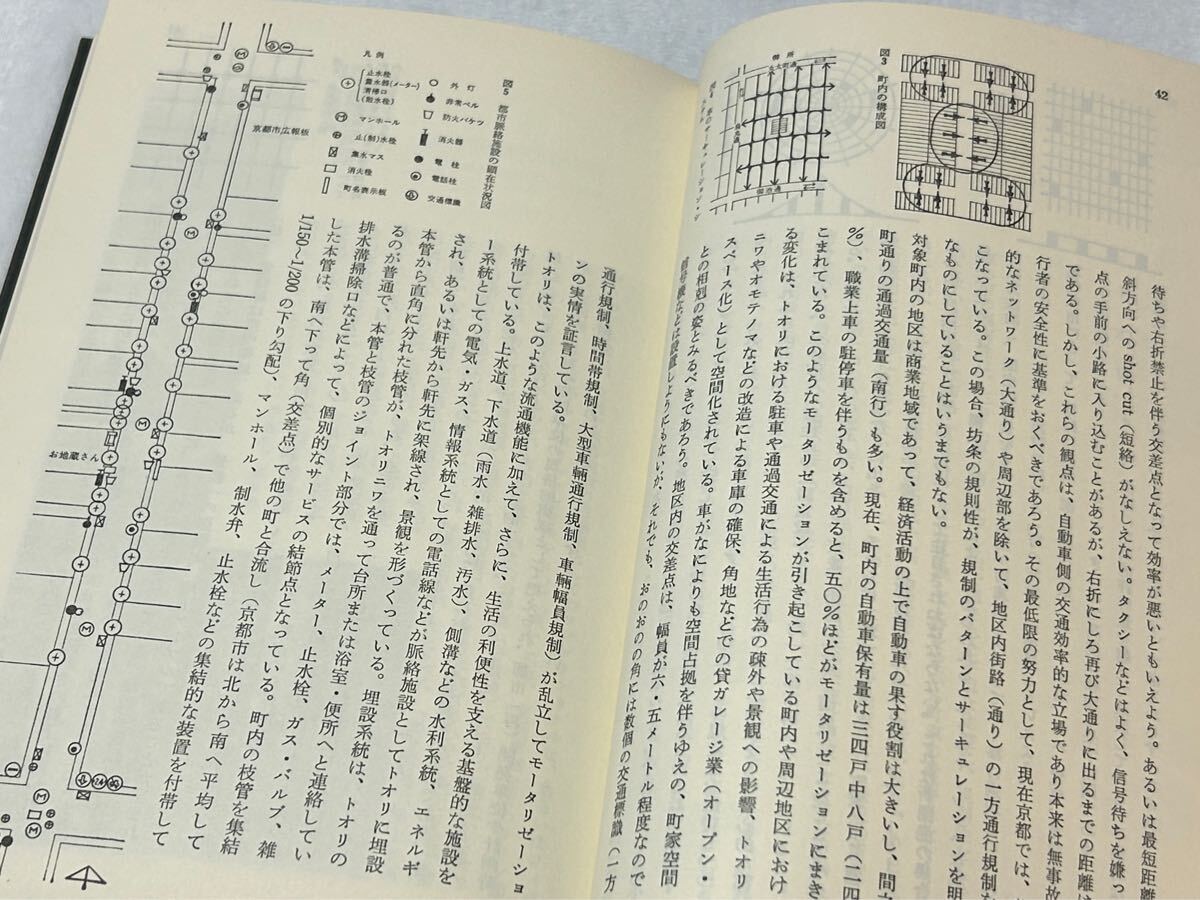 42
図3 町内の構成図
御所
丸太町通
烏丸通
御池通
待ちや右折禁止を伴う交差点となって効率が悪いともいえよう。あるいは最短距離
斜方向への shot cut（短絡）がなしえない。タクシーなどはよく、信号待ちを嫌っ
点の手前の小路に入り込むことがあるが、右折にしろ再び大通りに出るまでの距離
である。しかし、これらの観点は、自動車側の交通効率的な立場であり本来は無事故
行者の安全性に基準をおくべきであろう。その最低限の努力として、現在京都では、
的なネットワーク（大通り）や周辺部を除いて、地区内街路（通り）の一方通行規制な
こなっている。この場合、坊条の規則性が、規制のパターンとサーキュレーションを明
なものにしていることはいうまでもない。
対象町内の地区は商業地域であって、経済活動の上で自動車の果す役割は大きいし、間
町通りの通過交通量（南行）も多い。現在、町内の自動車保有量は三四戸中八戸（二四
%）、職業上車の駐停車を伴うものを含めると、五〇%ほどがモータリゼーションにまき
こまれている。このようなモータリゼーションが引き起こしている町内や周辺地区におけ
る変化は、トオリにおける駐車や通過交通による生活行為の疎外や景観への影響、トオリ
ニワやオモテノマなどの改造による車庫の確保、角地などでの貸ガレージ業（オープン・
スペース化）として空間化されている。車がなによりも空間占拠を伴うゆえの、町家空間
との相剋の姿とみるべきであろう。地区内の交差点は、幅員が六・五メートル程度なので
信号機などは設置しようにもないが、それでも、おのおのの角には数個の交通標識（一方
図5 都市脈絡施設の顕在状況図
凡例
止水栓
量水器(メーター)
清掃口
(散水栓)
マンホール
止(制)水栓
集水マス
消火栓
町名表示板
外灯
非常ベル
防火バケツ
消火器
電柱
電話柱
交通標識
京都市広報板
お地蔵さん
通行規制、時間帯規制、大型車輛通行規制、車輛幅員規制）が乱立してモータリゼーショ
ンの実情を証言している。
トオリは、このような流通機能に加えて、さらに、生活の利便性を支える基盤的な施設を
付帯している。上水道、下水道（雨水・雑排水、汚水）、側溝などの水利系統、エネルギ
ー系統としての電気・ガス、情報系統としての電話線などが脈絡施設としてトオリに埋設
され、あるいは軒先から軒先に架線され、景観を形づくっている。埋設系統は、トオリの
本管から直角に分れた枝管が、トオリニワを通って台所または浴室・便所へと連絡してい
るのが普通で、本管と枝管のジョイント部分では、メーター、止水栓、ガス・バルブ、雑
排水溝掃除口などによって、個別的なサービスの結節点となっている。町内の枝管を集結
した本管は、南へ下って角（交差点）で他の町と合流し（京都市は北から南へ平均して
1/150〜1/200 の下り勾配）、マンホール、制水弁、止水栓などの集結的な装置を付帯して